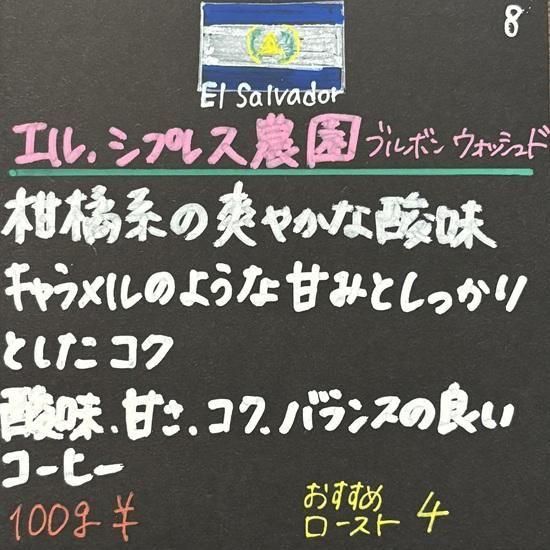 8
El Salvador
エル.シプレス農園 ブルボン ウォッシュド
柑橘系の爽やかな酸味
キャラメルのような甘みとしっかり
としたコク
酸味.甘さ.コク.バランスの良い
コーヒー
100g ¥
おすすめ
ロースト 4